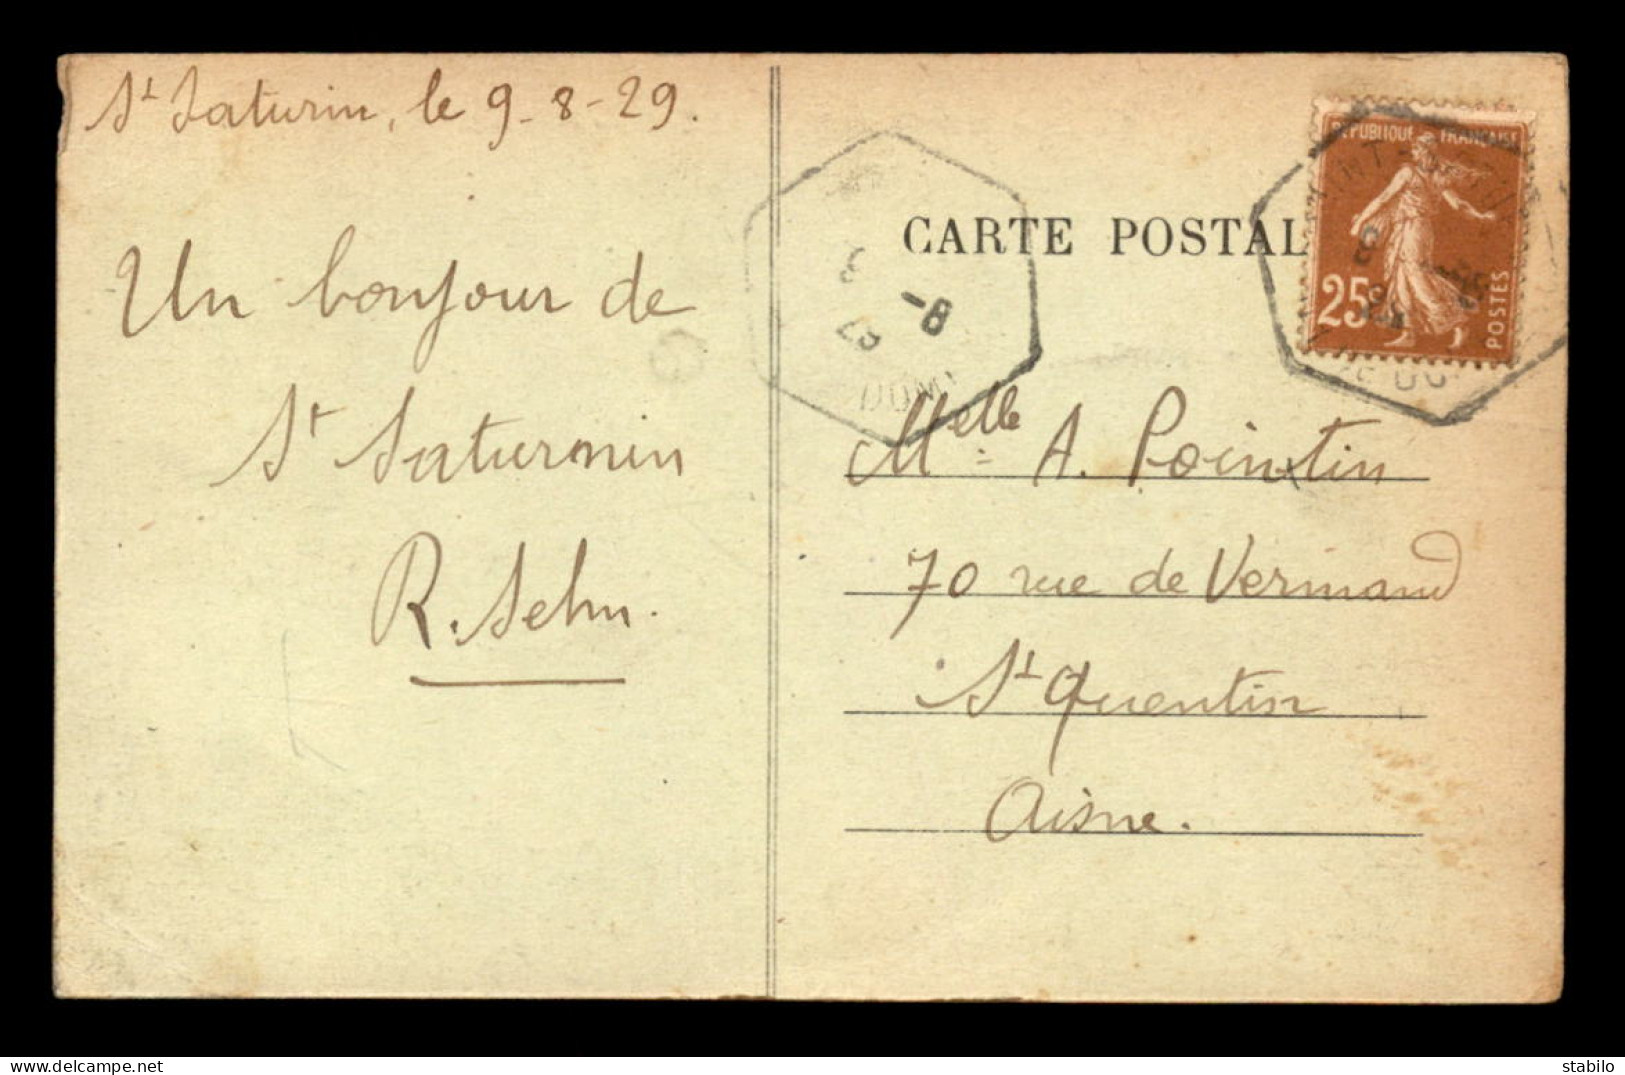 St Saturin, le 9-8-29.
Un bonjour de
St Saturnin
R. Sehn.
CARTE POSTAL
RÉPUBLIQUE FRANÇAISE
25
POSTES
-8
DOM
Melle A. Pointin
70 rue de Vermand
St Quentin
Aisne.
delcampe.net
stabilo